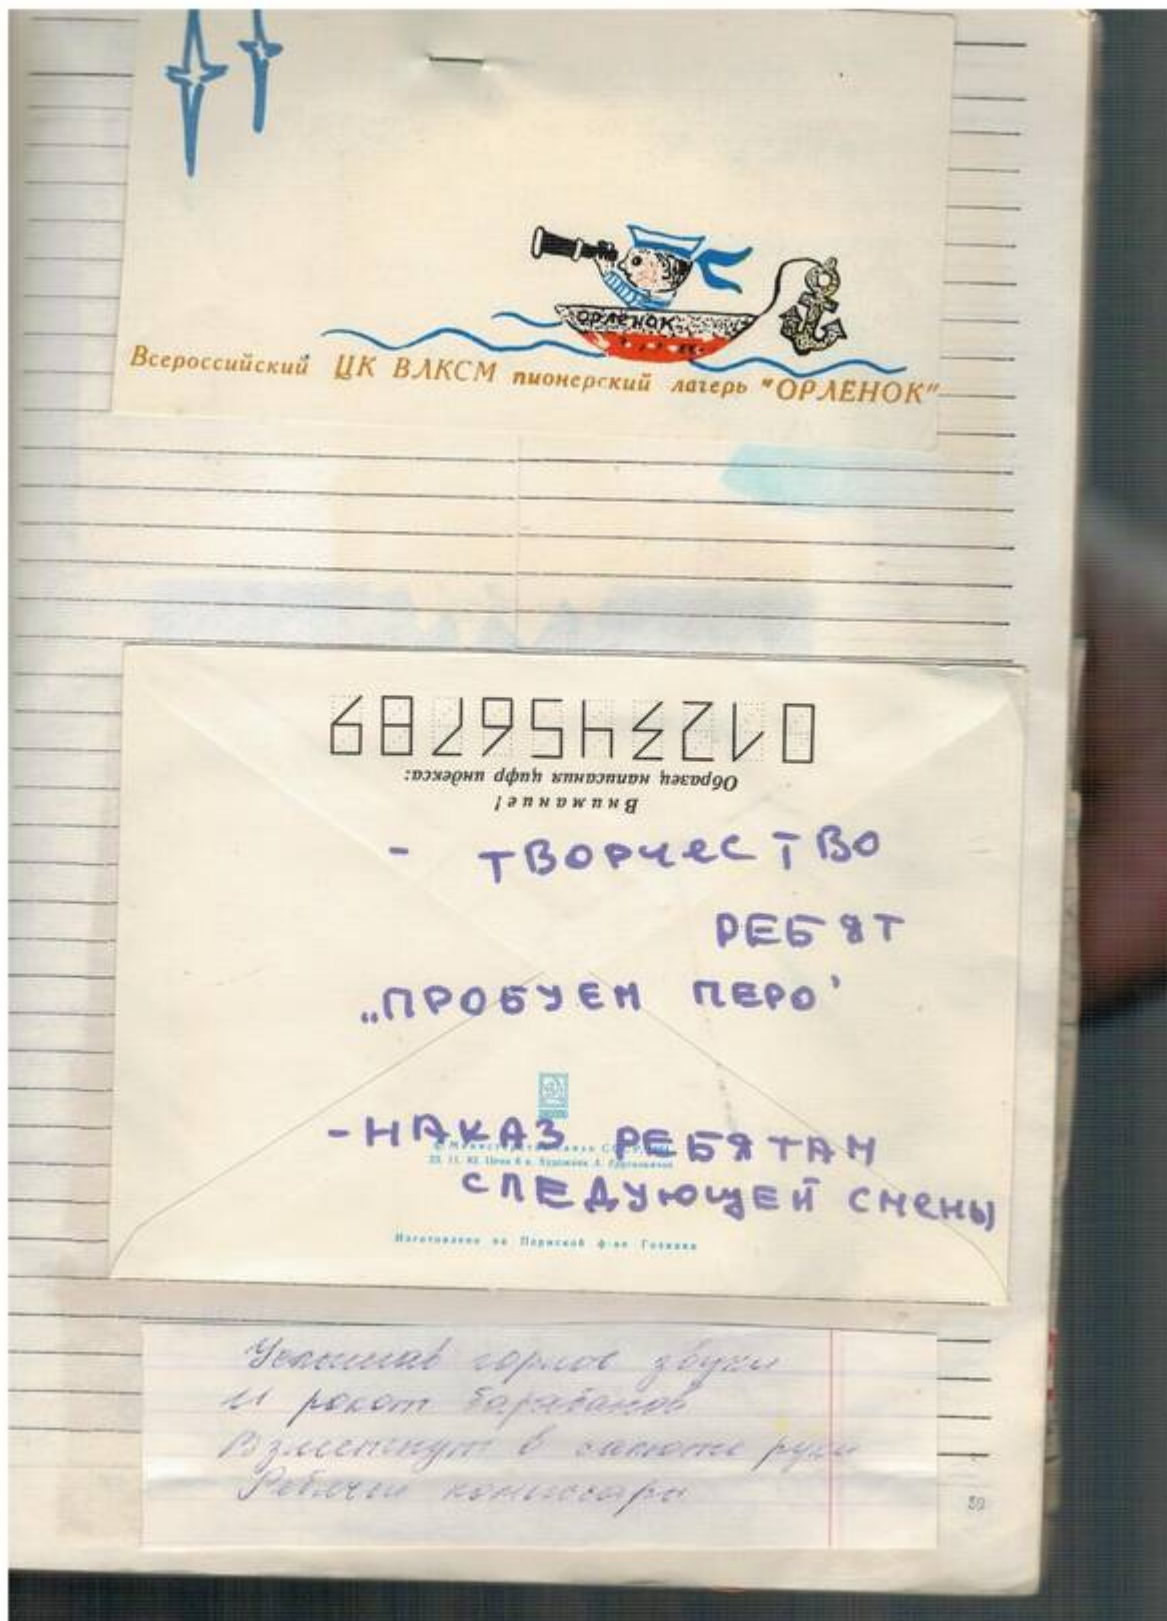 ОРЛЁНОК
Всероссийский ЦК ВЛКСМ пионерский лагерь "ОРЛЕНОК"
0123456789
Образец написания цифр индекса:
Внимание!
- ТВОРЧЕСТВО
РЕБЯТ
„ПРОБУЕМ ПЕРО'
- НАКАЗ РЕБЯТАМ
© Министерство связи СССР
СЛЕДУЮЩЕЙ СМЕНЫ
Изготовлено на Пермской ф-ке Гознака
Услышав горнов звуки
И рокот барабанов
Взметнут в салюте руки
Ребячьи комиссары
30